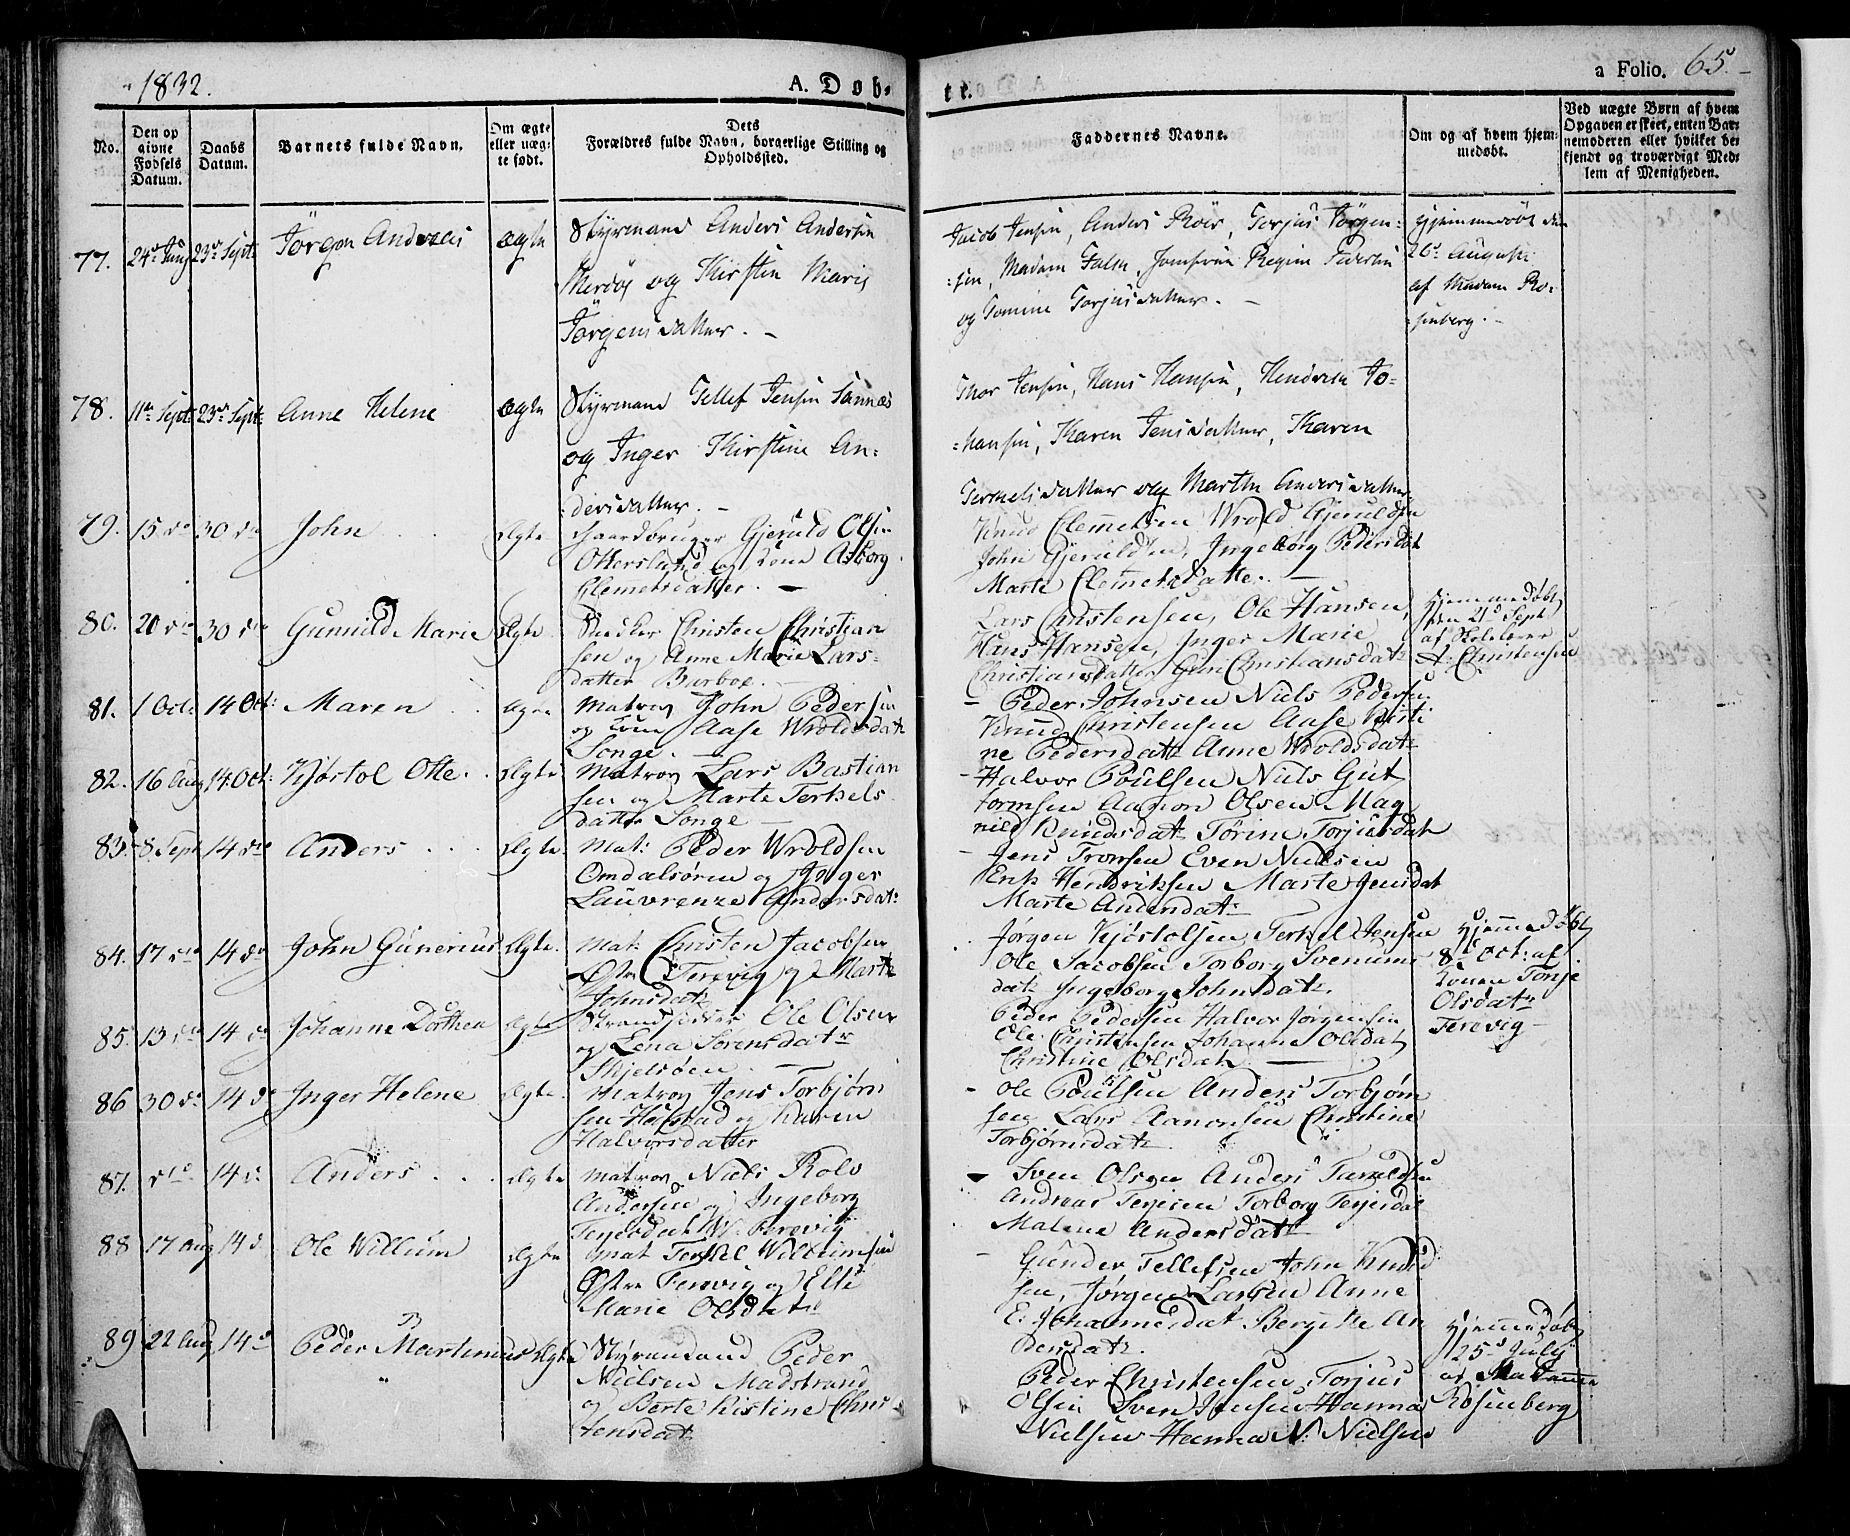 1832.
A. Døb-
te.
a Folio. 65.
No.
Den op
givne
Fødsels
Datum.
Daabs
Datum.
Barnets fulde Navn.
Om ægte
eller uæg-
te født.
Dets
Forældres fulde Navn, borgerlige Stilling og
Opholdssted.
Faddernes Navne.
Om og af hvem hjem-
medøbt.
Ved uægte Børn af hvem
Opgaven er skeet, enten Bar-
nemoderen eller hvilket be-
kjendt og troværdigt Med-
lem af Menigheden.
77. 24d Aug 23d Sept: Jörgen Andreas ægte
Styrmand Anders Andersen
Merdø og Kirstin Marie
Jørgensdatter. –
Jacob Jensen, Anders Roer, Torjus Jörgen-
sen, Madam Falk, Jomfrue Regine Pedersen
og Tomine Torjusdatter. –
Hjemmedøbt den
26d August
af Madam Ro-
senberg. –
78. 11te Sept: 23d Sept: Anne Helene ægte
Styrmand Tellef Jensen Sannæs
og Inger Kirstine An-
dersdatter. –
Thor Jensen, Hans Hansen, Hendrik Jo-
hansen, Karen Jensdatter, Karen
Terkelsdatter og Marthe Andersdatter
79. 15 do 30 do John Ægte
Gaardbruger Gjeruld Olsen
Otterslund og Kone Asborg
Clemetsdatter. –
Knud Clemetsen Wrold Gjeruldsen
John Gjeruldsen, Ingeborg Pedersdat
Marte Clemetsdatte. –
80. 20 do 30 do Gunnild Marie Ægte
Snedker Christen Christian
sen og Anne Marie Lars-
datter Burboe. –
Lars Christensen, Ole Hansen,
Hans Hansen, Inger Marie
Christiansdatter Gun Christiansdat:
Hjemmedøbt
den 21d Sept
af Skolelærer
A. Christensen
81. 1 Oct: 14 Oct: Maren Ægte
Matros John Pedersen
og Kone Aase Wroldsdat:
Songe. –
Peder Johnsen Niels Pedersen
Knud Christensen Aase Kirsti
ne Pedersdatt Anne Wroldsdat:
82. 16 Aug 14. Oct: Kjøstol Otte. Ægte
Matros Lars Bastian
sen og Marte Terkels
datter Songe –
Halvor Poulsen Niels Gut
tormsen Aanon Olsen Mag
nild Knudsdat: Törine Torjusdat
83. 8 Sept 14 do Anders Ægte.
Mat: Peder Wroldsen
Omdalsøren og Inger
Lauvrenze Andersdat:
Jens Tronsen Even Nielsen
Erik Hendriksen Marte Jensdat
Marte Andersdat:
84. 17 do 14 do John Gunerius Ægte.
Mat: Christen Jacobsen
Østre Terevig og Marte
Johnsdat:
Jørgen Kjøstolsen Terkel Jensen
Ole Jacobsen Torborg Svenums
dat: Ingeborg Johnsdat:
Hjemmedøbt
8d Oct: af
Konen Torje
Olsdatr
Terevig –
85. 13 do 14 do Johanne Dorthea Ægte
Strandsidder Ole Olsen
og Lena Sørensdatr
Skjelsøen. –
Peder Pedersen Halvor Jørgensen
Ole Christensen Johanne Olsdat
Christine Olsdat: –
86 30 do 14 do Inger Helene Ægte.
Matros Jens Torbjørn
sen Hafstad og Karen
Halvorsdatter
Ole Poulsen Anders Torbjørn
sen Lars Aanonsen Christine
Torbjørnsdat:
87. do 14 d. Anders Ægte
Matros Niels Rolv
Andersen og Ingeborg
Terjesdat W. Terevig
Sven Olsen Anders Taraldsen
Andreas Terjesen Torborg Terjesdat
Malene Andersdat:
88 17 Aug 14 d Ole Willum Ægte
Mat Terkel Willumsen
Østre Terevig og Else
Marie Olsdat:
Gunder Tellefsen John Knud
sen, Jørgen Larsen Anne
E. Johannesdat Bergitte An
dersdat:
89 22 Aug 14 d Peder Martinius Ægte
Styrmand Peder
Nielsen Madstrand
og Berte Kistine Chris
tensdat:
Peder Christensen Torjus
Olsen Sven Jensen Hanna
Nielsen Hanna N: Nielsen
Hjemmedøbt
25d July
af Madame
Rosenberg